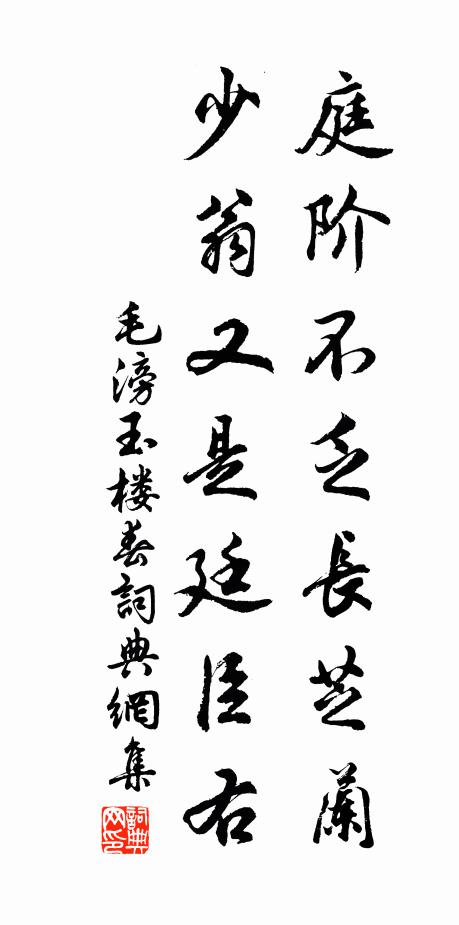 庭阶不乏长芝兰
少翁又是廷臣右
毛滂玉楼春詞典網集
詞典网印